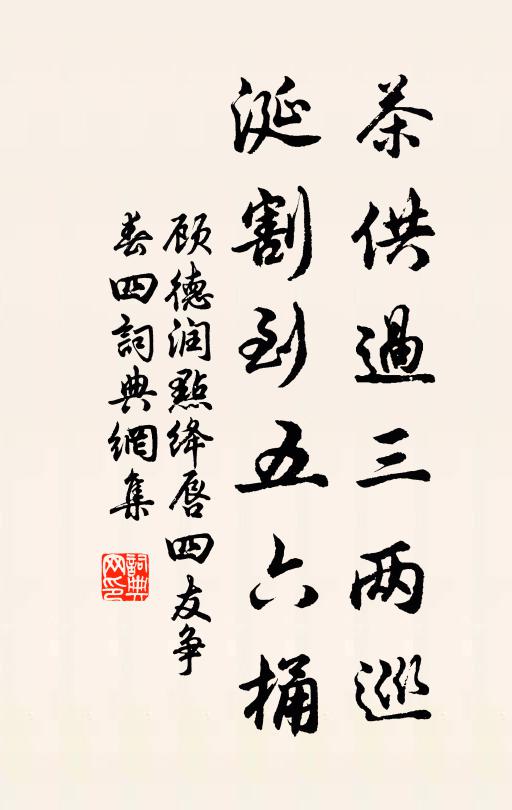 茶供過三两巡
涎割到五六桶
顾德润點绛唇四友争
春四詞典網集
詞典网印